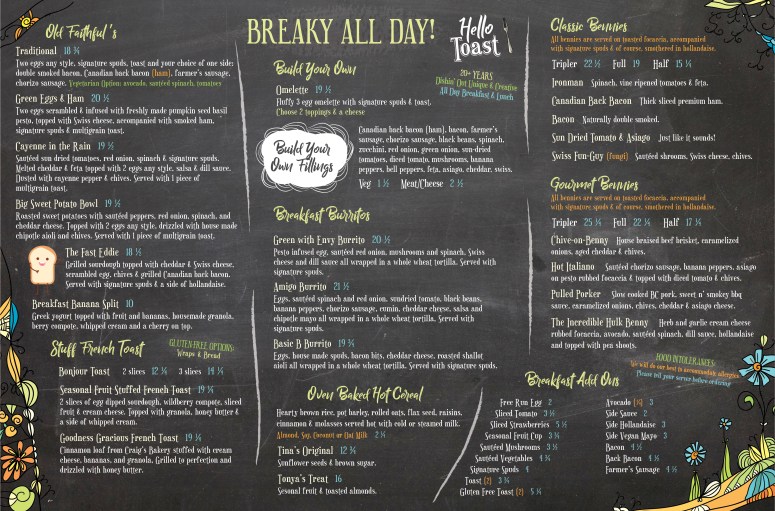 Old Faithful's
Traditional 18 ¾
Two eggs any style, signature spuds, toast and your choice of one side:
double smoked bacon, Canadian back bacon (ham), farmer's sausage,
chorizo sausage. Vegetarian Option: avocado, sautéed spinach, tomatoes
Green Eggs & Ham 20 ½
Two eggs scrambled & infused with freshly made pumpkin seed basil
pesto, topped with Swiss cheese, accompanied with smoked ham,
signature spuds & multigrain toast.
Cayenne in the Rain 19 ½
Sautéed sun dried tomatoes, red onion, spinach & signature spuds.
Melted cheddar & feta topped with 2 eggs any style, salsa & dill sauce.
Dusted with cayenne pepper & chives. Served with 1 piece of
multigrain toast.
Big Sweet Potato Bowl 19 ½
Roasted sweet potatoes with sautéed peppers, red onion, spinach, and
cheddar cheese. Topped with 2 eggs any style, drizzled with house made
chipotle aioli and chives. Served with 1 piece of multigrain toast.
The Fast Eddie 18 ½
Grilled sourdough topped with cheddar & Swiss cheese,
scrambled egg, chives & grilled Canadian back bacon.
Served with signature spuds & a side of hollandaise.
Breakfast Banana Split 10
Greek yogurt topped with fruit and bananas, housemade granola,
berry compote, whipped cream and a cherry on top.
Stuff French Toast
GLUTEN-FREE OPTIONS:
Wraps & Bread
Bonjour Toast 2 slices 12 ¾ 3 slices 14 ¾
Seasonal Fruit Stuffed French Toast 19 ¾
2 slices of egg dipped sourdough, wildberry compote, sliced
fruit & cream cheese. Topped with granola, honey butter &
a side of whipped cream.
Goodness Gracious French Toast 19 ¾
Cinnamon loaf from Craig's Bakery stuffed with cream
cheese, bananas, and granola. Grilled to perfection and
drizzled with honey butter.
BREAKY ALL DAY!
Hello
Toast
20+ YEARS
Dishin' Out Unique & Creative
All Day Breakfast & Lunch
Build Your Own
Omelette 19 ½
Fluffy 3 egg omelette with signature spuds & toast.
Choose 2 toppings & a cheese
Build Your
Own Fillings
Canadian back bacon (ham), bacon, farmer's
sausage, chorizo sausage, black beans, spinach,
zucchini, red onion, green onion, sun-dried
tomatoes, diced tomato, mushrooms, banana
peppers, bell peppers, feta, asiago, cheddar, swiss.
Veg 1 ½ Meat/Cheese 2 ½
Breakfast Burritos
Green with Envy Burrito 20 ½
Pesto infused egg, sautéed red onion, mushrooms and spinach, Swiss
cheese and dill sauce all wrapped in a whole wheat tortilla. Served with
signature spuds.
Amigo Burrito 21 ½
Eggs, sautéed spinach and red onion, sundried tomato, black beans,
banana peppers, chorizo sausage, cumin, cheddar cheese, salsa and
chipotle mayo all wrapped in a whole wheat tortilla. Served with
signature spuds.
Basic B Burrito 19 ¾
Eggs, house made spuds, bacon bits, cheddar cheese, roasted shallot
aioli all wrapped in a whole wheat tortilla. Served with signature spuds.
Oven Baked Hot Cereal
Hearty brown rice, pot barley, rolled oats, flax seed, raisins,
cinnamon & molasses served hot with cold or steamed milk.
Almond, Soy, Coconut or Oat Milk 2 ¼
Tina's Original 12 ¾
Sunflower seeds & brown sugar.
Tonya's Treat 16
Sesonal fruit & toasted almonds.
Classic Bennies
All bennies are served on toasted focaccia, accompanied
with signature spuds & of course, smothered in hollandaise.
Tripler 22 ½ Full 19 Half 15 ¼
Ironman Spinach, vine ripened tomatoes & feta.
Canadian Back Bacon Thick sliced premium ham.
Bacon Naturally double smoked.
Sun Dried Tomato & Asiago Just like it sounds!
Swiss Fun-Guy (fungi) Sautéed shrooms, Swiss cheese, chives.
Gourmet Bennies
All bennies are served on toasted focaccia, accompanied
with signature spuds & of course, smothered in hollandaise.
Tripler 25 ¼ Full 22 ¼ Half 17 ¾
Chive-on-Benny House braised beef brisket, caramelized
onions, aged cheddar & chives.
Hot Italiano Sautéed chorizo sausage, banana peppers, asiago
on pesto rubbed focaccia & topped with diced tomato & chives.
Pulled Porker Slow cooked BC pork, sweet n' smokey bbq
sauce, caramelized onions, chives, cheddar & asiago cheese.
The Incredible Hulk Benny Herb and garlic cream cheese
rubbed focaccia, avocado, sautéed spinach, dill sauce, hollandaise
and topped with pea shoots.
FOOD INTOLERANCES:
We will do our best to accommodate allergies.
Please tell your server before ordering!
Breakfast Add Ons
Free Run Egg 2
Sliced Tomato 3 ½
Sliced Strawberries 5 ½
Seasonal Fruit Cup 3 ¾
Sautéed Mushrooms 3 ½
Sautéed Vegetables 4 ¾
Signature Spuds 4
Toast (2) 3 ¾
Gluten Free Toast (2) 5 ¼
Avocado 3
Side Sauce 2
Side Hollandaise 3
Side Vegan Mayo 3
Bacon 4 ½
Back Bacon 4 ½
Farmer's Sausage 4 ½